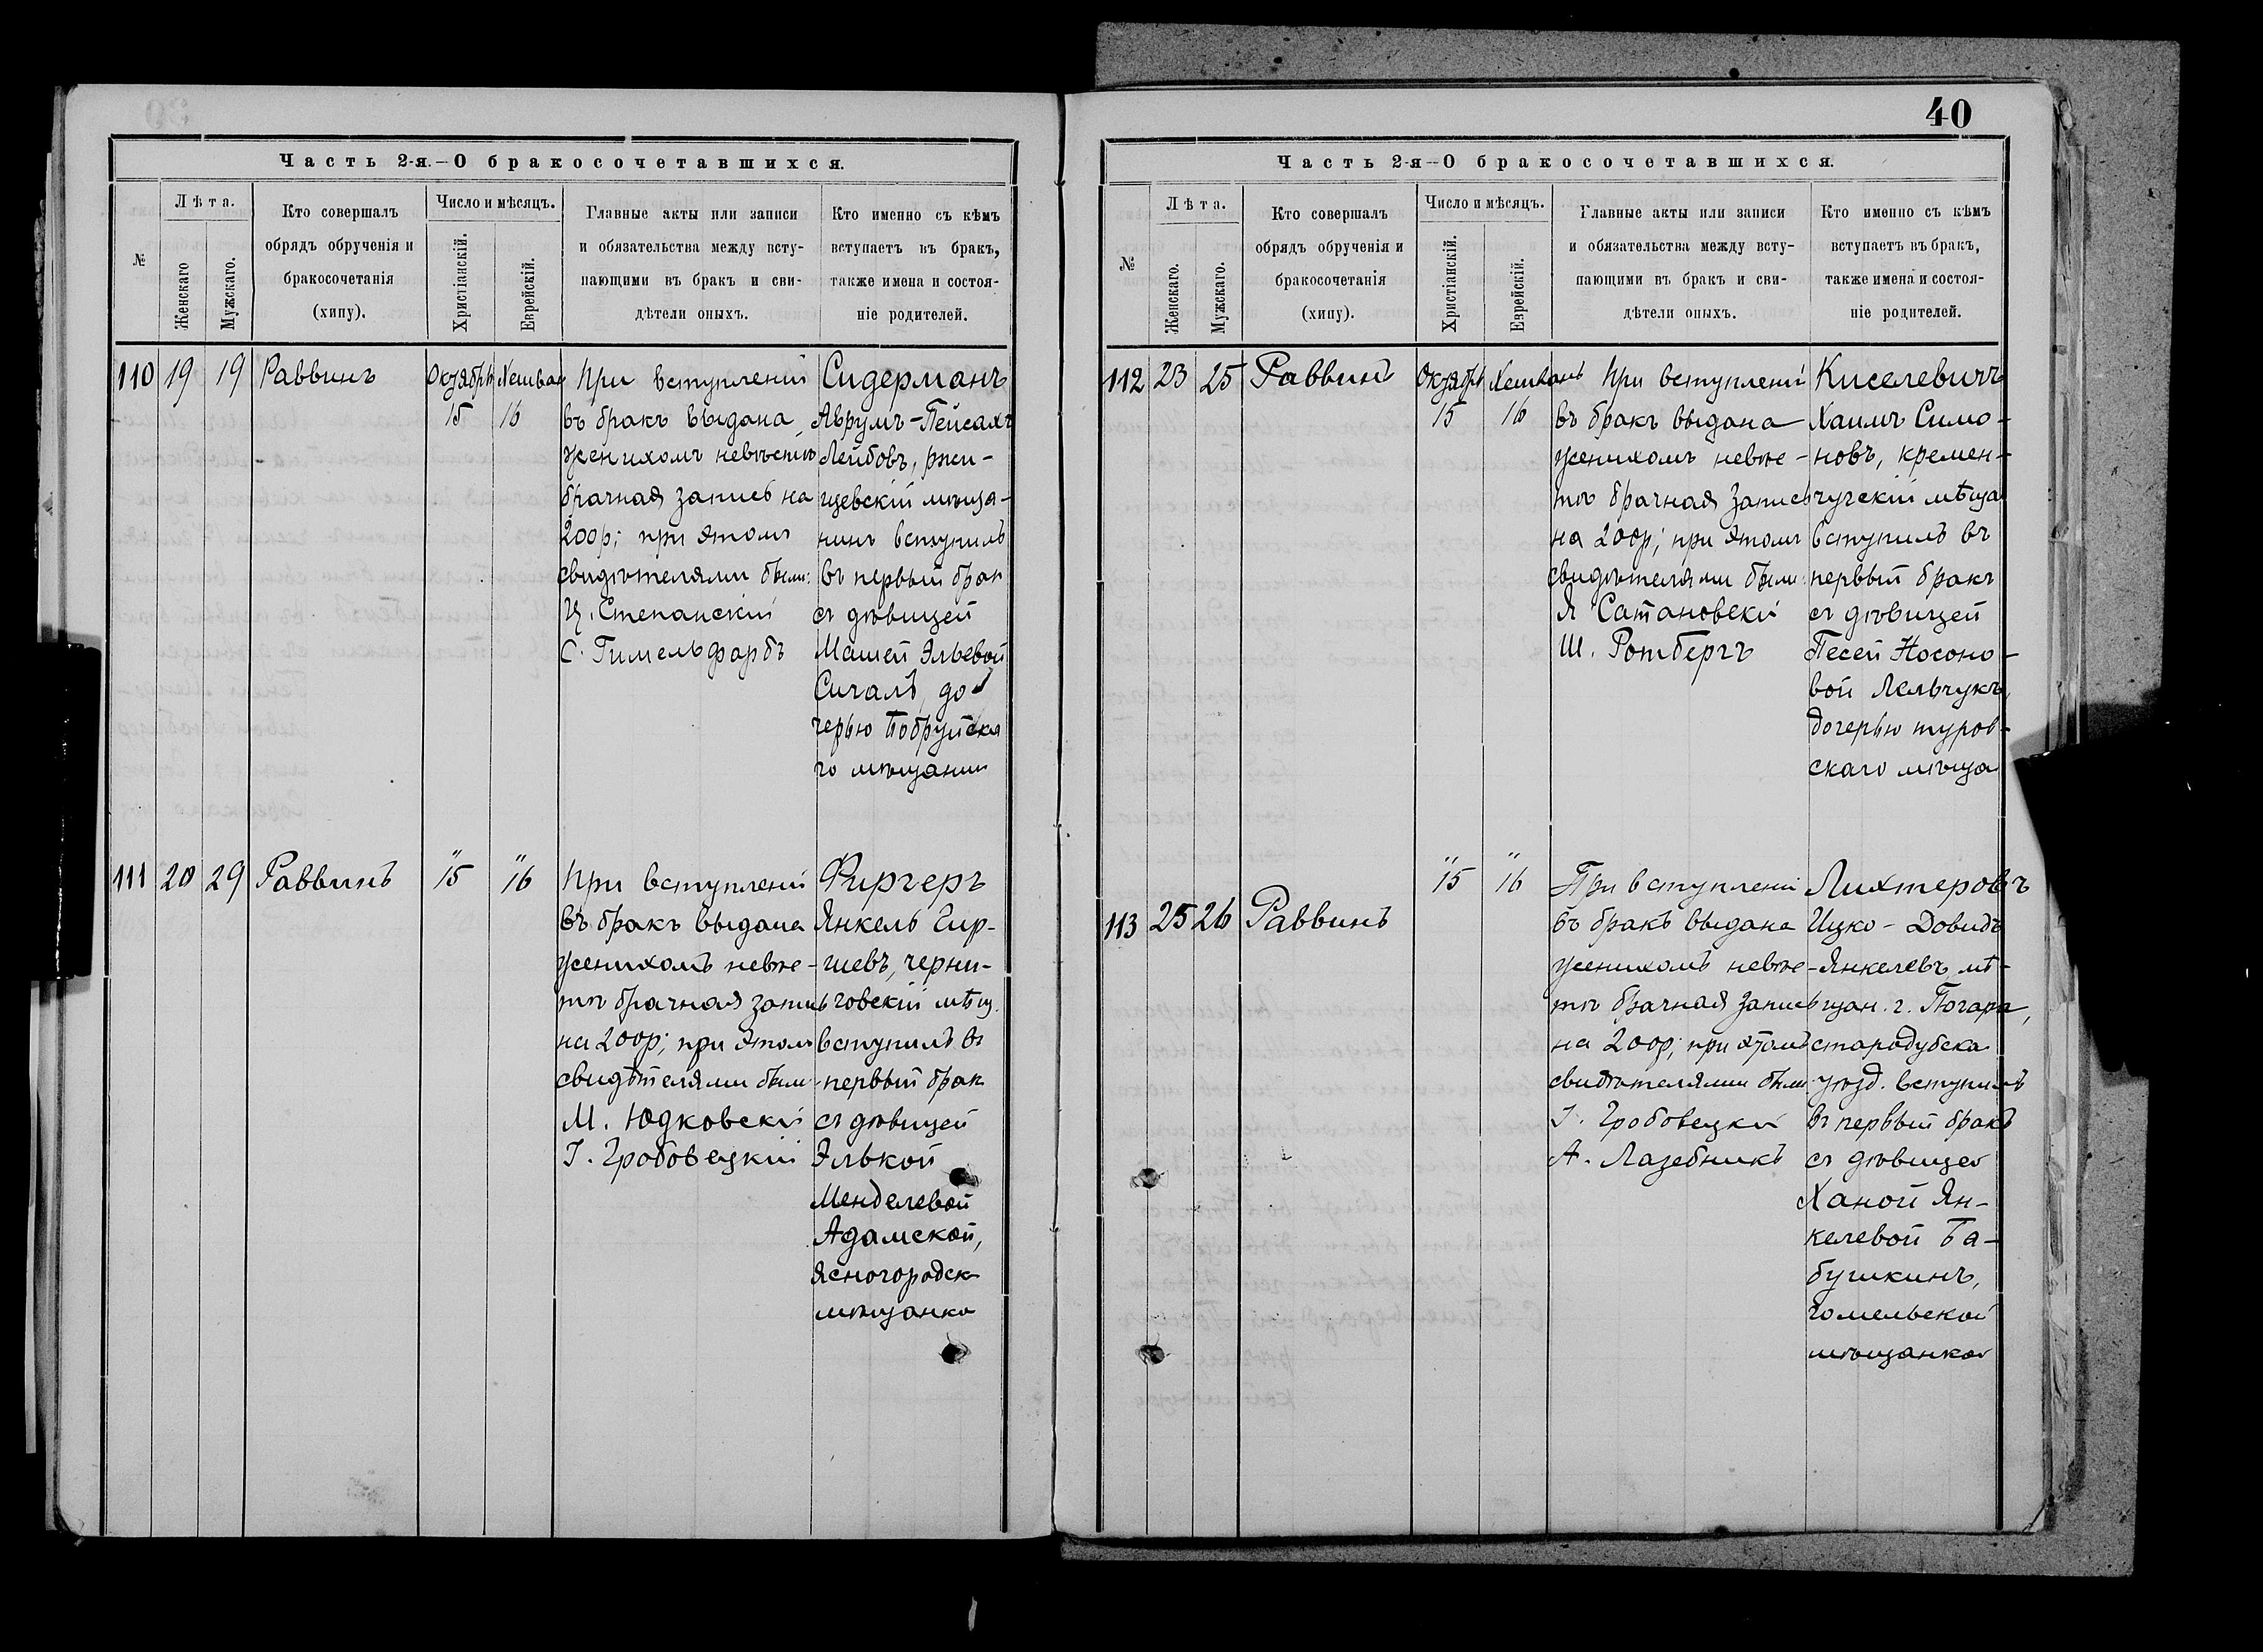 Часть 2-я.—О бракосочетавшихся.
№
Лѣта.
Женскаго
Мужскаго.
Кто совершалъ
обрядъ обрученія и
бракосочетанія
(хипу).
Число и мѣсяцъ.
Христіанскій.
Еврейскій.
Главные акты или записи
и обязательства между всту-
пающими въ бракъ и сви-
дѣтели оныхъ.
Кто именно съ кѣмъ
вступаетъ въ бракъ,
также имена и состоя-
ніе родителей.
110 19 19 Раввинъ
Октября
15
Хешван
16
При вступленіи
въ бракъ выдана
женихомъ невѣстѣ
брачная запись на
200р; при этомъ
свидѣтелями были:
Ц. Степанскій
С. Гимельфарбъ
Сидерманъ
Аврумъ-Пейсахъ
Лейбовъ, ржи-
щевскій мѣща-
нинъ вступилъ
въ первый брак
съ дѣвицей
Машей Эльевой
Сигалъ, до
черью Бобруйска
го мѣщанин
111 20 29 Раввинъ
" 15
" 16
При вступленіи
въ бракъ выдана
женихомъ невѣс-
тѣ брачная запись
на 200р; при этомъ
свидѣтелями были
М. Юдковскій
І. Гробовецкій
Фиргеръ
Янкель Гир-
шевъ, черни-
говскій мѣщ.
вступилъ въ
первый брак
съ дѣвицей
Элькой
Менделевой
Адамской,
ясногородск
мѣщанко
40
Часть 2-я—О бракосочетавшихся.
№
Лѣта.
Женскаго.
Мужскаго.
Кто совершалъ
обрядъ обрученія и
бракосочетанія
(хипу).
Число и мѣсяцъ.
Христіанскій.
Еврейскій.
Главные акты или записи
и обязательства между всту-
пающими въ бракъ и сви-
дѣтели оныхъ.
Кто именно съ кѣмъ
вступаетъ въ бракъ,
также имена и состоя-
ніе родителей.
112 23 25 Раввинъ
Октябр
15
Хешванъ
16
При вступленіи
въ бракъ выдана
женихомъ невѣс-
тѣ брачная запись
на 200р; при этомъ
свидѣтелями были:
Я Сатановскій
Ш. Ротбергъ
Киселевичъ
Хаимъ Симо-
новъ, кремен-
чугскій мѣща
вступилъ въ
первый бракъ
съ дѣвицей
Песей Носоно-
вой Лельчукъ,
дочерью туров-
скаго мѣща
113 25 26 Раввинъ
" 15
" 16
При вступленіи
въ бракъ выдана
женихомъ невѣс-
тѣ брачная запись
на 200р; при этомъ
свидѣтелями были
І. Гробовецкій
А. Лазебникъ
Лихтеровъ
Ицко-Довидъ
Янкелевъ, мѣ-
щан. г. Погара,
стародубска
уѣзд. вступилъ
въ первый бракъ
съ дѣвицей
Ханой Ян-
келевой Ба-
бушкинъ,
гомельской
мѣщанкой